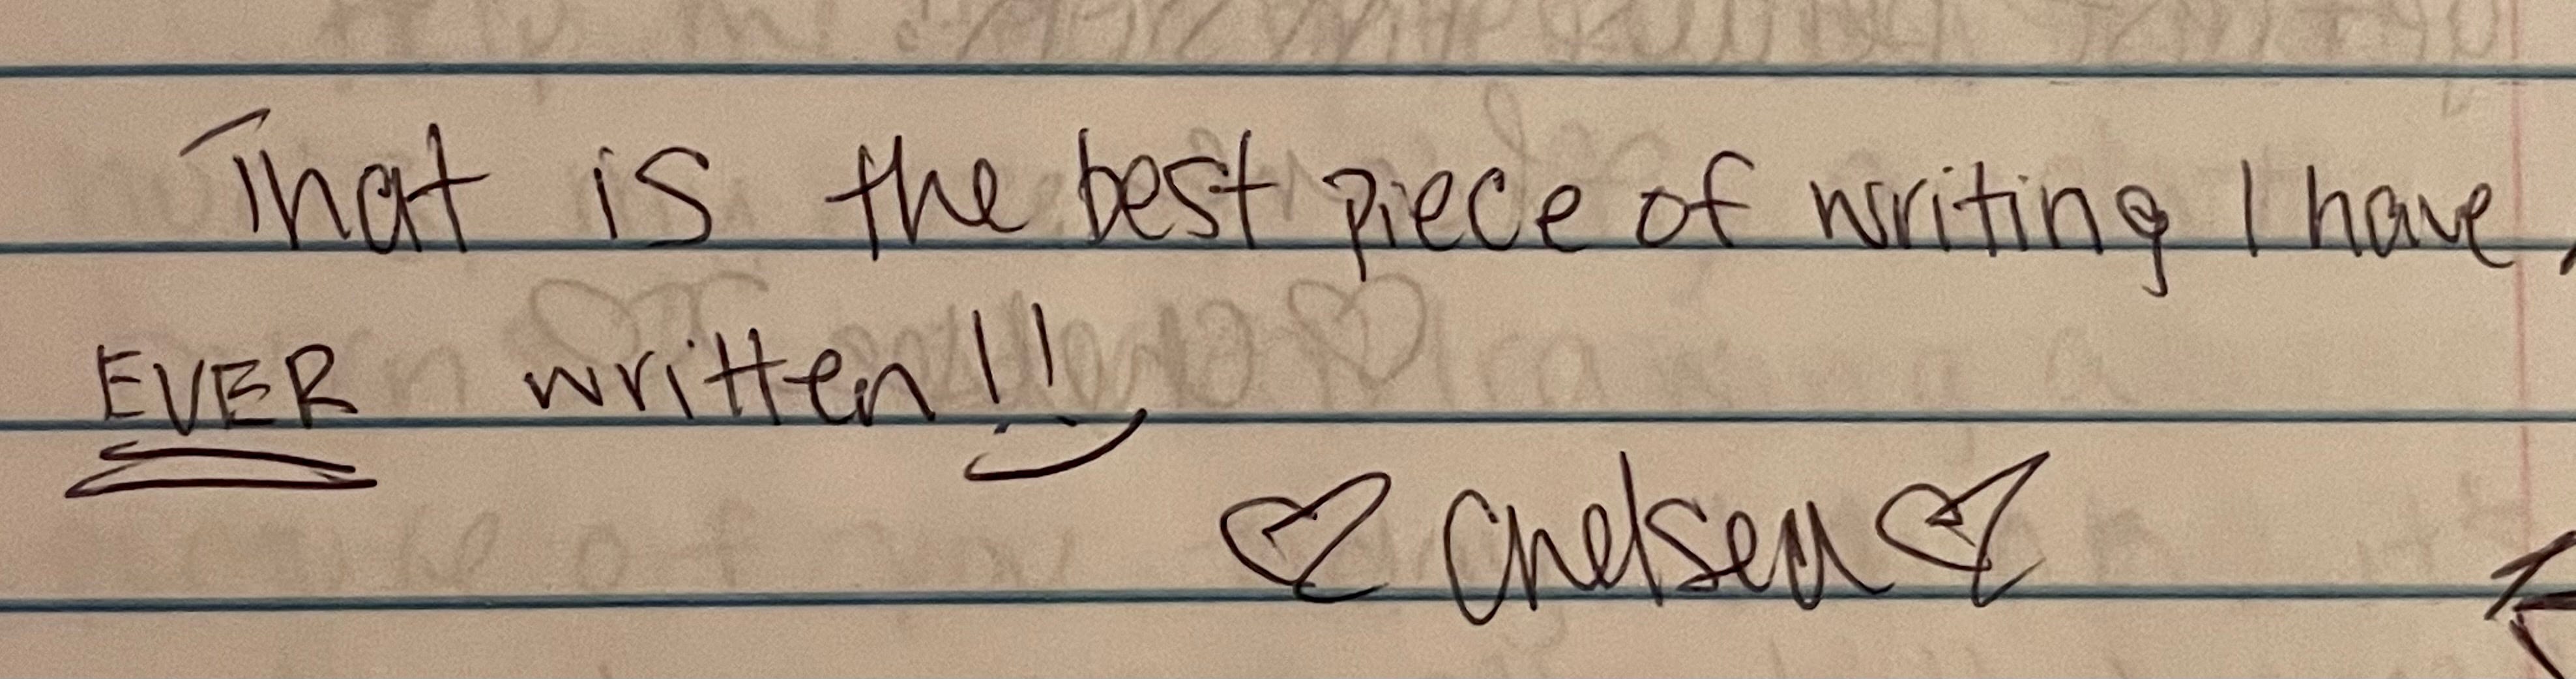 That is the best piece of writing I have
EVER written!!
♡ Chelsea ♡